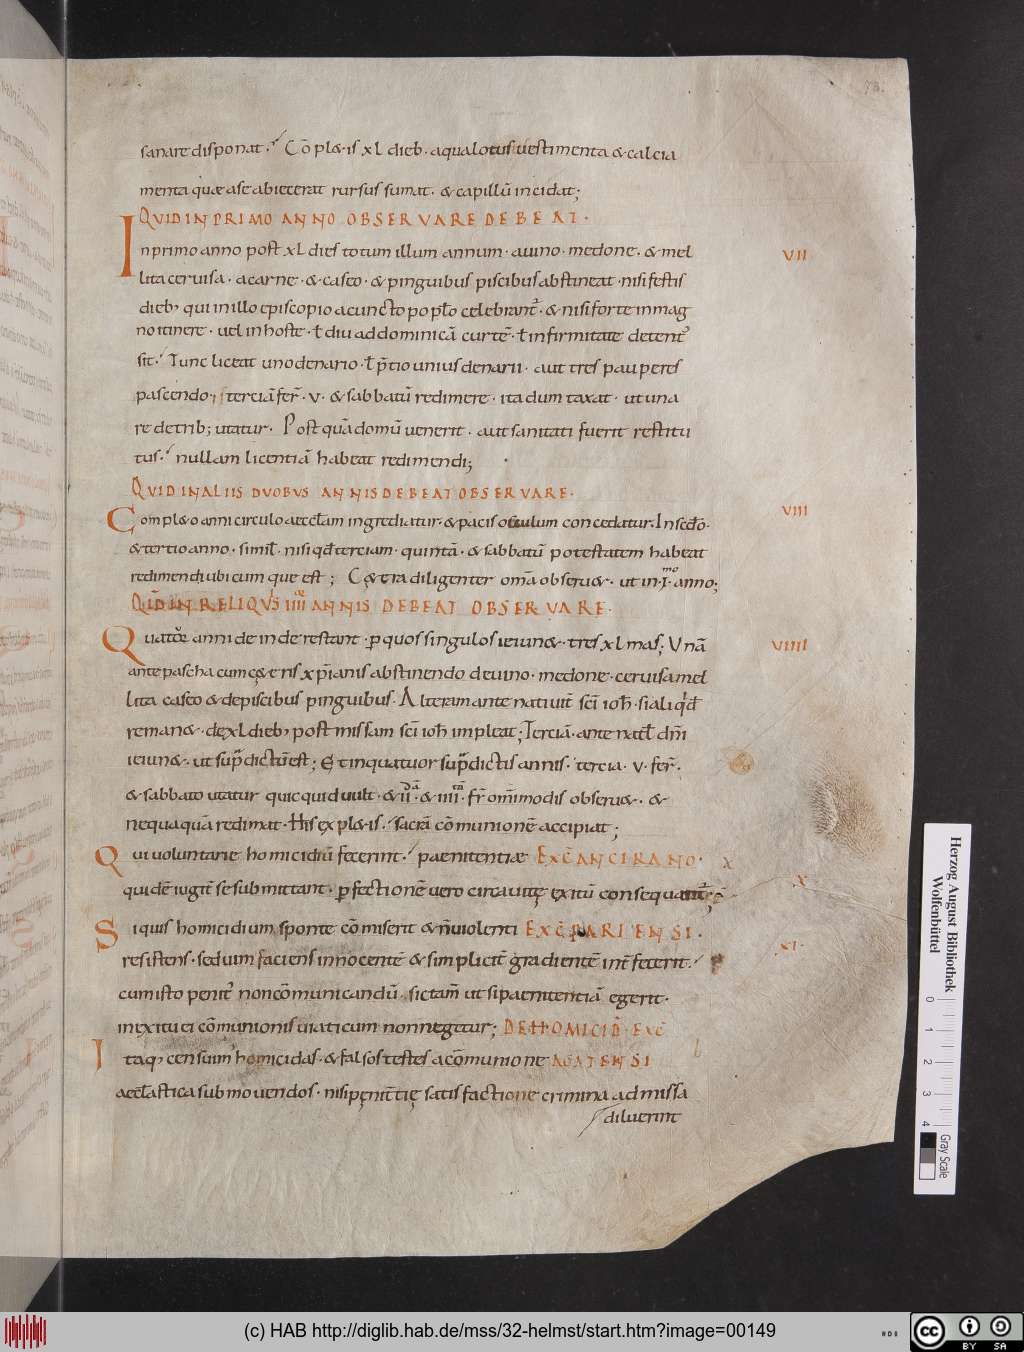 sanare disponat. Cō pl&is xl dieb. aqualotus uestimenta & calcia
menta quæ a se abiecerat rursus sumat. & capillū incidat;
QVID IN PRIMO ANNO OBSERVARE DEBEAT.
In primo anno post xl dies totum illum annum. auino. medone. & mel
VII
lita ceruisa. acarne. & caseo. & pinguibus piscibus abstineat. nisi festis
dieb; qui in illo episcopio acuncto poplo celebrant. & nisi forte in mag
no itinere. uel in hoste. ł diu ad dominicā curtē. ł infirmitate detent
sit. Tunc liceat uno denario. ł ptio unius denarii. aut tres pauperes
pascendo. terciā fer. v. & sabbatū redimere. ita dum taxat. ut una
re de trib; utatur. Post quā domū uenerit. aut sanitati fuerit restitu
tus. nullam licentiā habeat redimendi;
QVID IN ALIIS DVOBVS ANNIS DEBEAT OBSERVARE.
Compl&o anni circulo aeccłam ingrediatur. & pacis osculum concedatur. In scdo.
VIII
& tertio anno. simił. nisi qđ terciam. quintā. & sabbatū potestatem habeat
redimendi ubicumque est; C&era diligenter omā obseru&. ut in .I.mo anno;
QID IN RELIQVIS IIII ANNIS DEBEAT OBSERVARE.
Quatōr anni deinde restant. p quos singulos ieiun& tres xlmas; Unā
VIIII
ante pascha cum c&eris xpianis abstinendo de uino. medone. ceruisa mel
lita caseo & de piscibus pinguibus. Alteram ante natiuit sci ioh. si aliqđ
reman& de xl dieb; post missam sci ioh impleat; Terciā. ante nał dni
ieiun&. ut sup dictū est; Et in quatuor sup dictis annis. tercia. v. fer.
& sabbato utatur quicquid uult. & II. & IIII. fr omimodis obseru&. &
nequaquā redimat. His expl&is. sacrā cōmunionē accipiat;
Qui uoluntarie homicidiū fecerint. paenitentiæ EXC ANCIRANO.
X
quidē iugit se submittant. pfectionē uero circa uitę exitū consequant
X
Siquis homicidium sponte cōmiserit & n uiolenti EXC PARIENSI.
resistens. sed uim faciens innocentē & simplicit gradientē int fecerit.
XI.
cum isto penit non cōmunicandū. sic tam ut si paenitentiā egerit.
in exitu ei cōmunionis uiaticum non negetur; DE HOMICID EXC
Itaq; censuim homicidas. & falsos testes a cōmunione AGATENSI
aeccłastica submouendos. nisi pęnitętię satisfactione crimina admissa
diluerint
Herzog August Bibliothek
Wolfenbüttel
0
1
2
3
4
Gray Scale
(c) HAB http://diglib.hab.de/mss/32-helmst/start.htm?image=00149
cc
BY SA